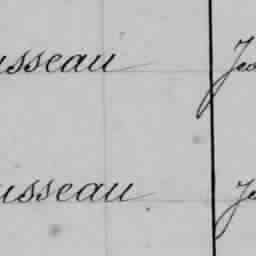 usseau Jea
usseau Je